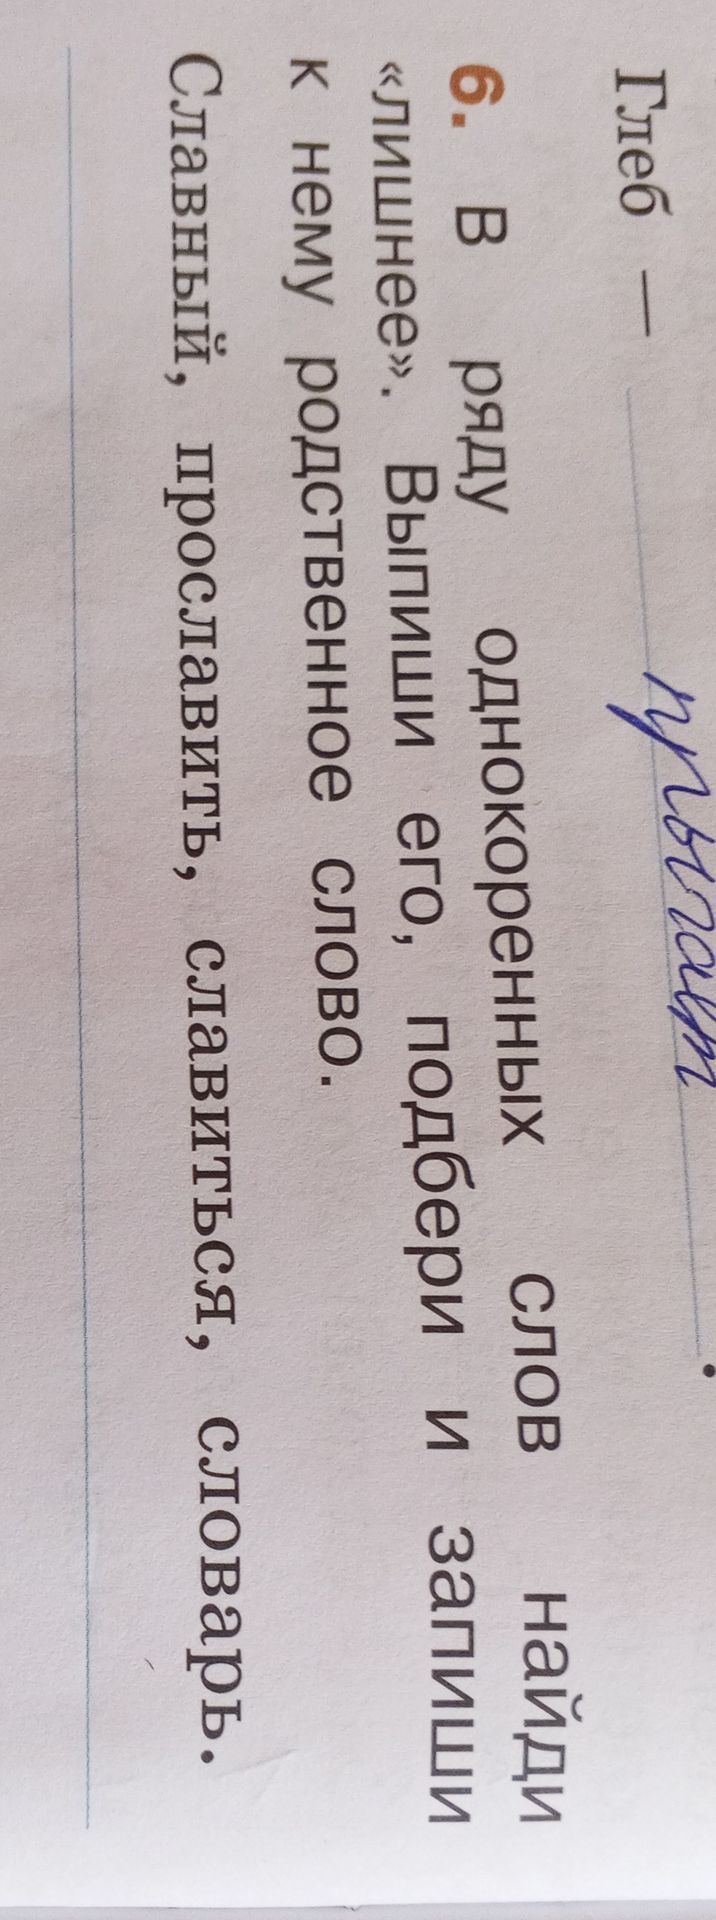 Глеб — прыгат .
6. В ряду однокоренных слов найди
«лишнее». Выпиши его, подбери и запиши
к нему родственное слово.
Славный, прославить, славиться, словарь.